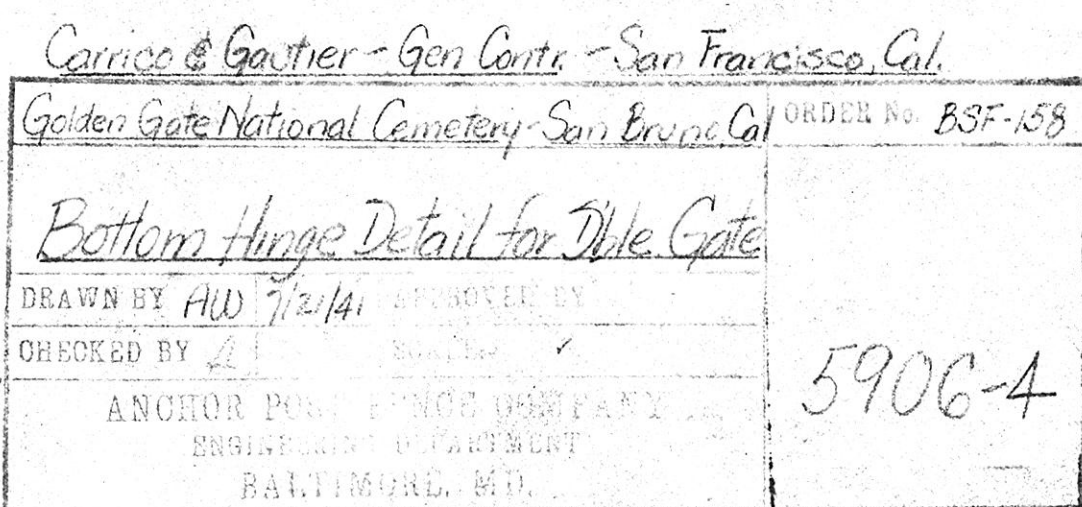 Carrico & Gautier - Gen Contr. - San Francisco, Cal.
Golden Gate National Cemetery - San Bruno, Cal
ORDER No. BSF-158
Bottom Hinge Detail for Dble. Gate
DRAWN BY AW 7/21/41 APPROVED BY
CHECKED BY
5906-4
ANCHOR POST FENCE COMPANY
ENGINEERING DEPARTMENT
BALTIMORE, MD.